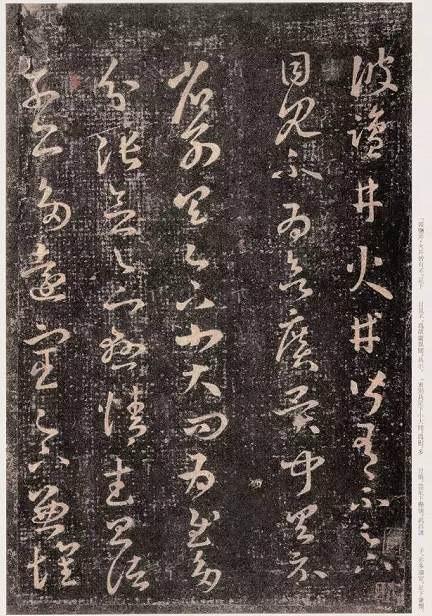 彼鹽井火井皆有不足下
目見不為欲廣異聞具示
省別具足下小大問為慰多
分張念足下懸情武昌諸
子亦多遠宦足下兼懷